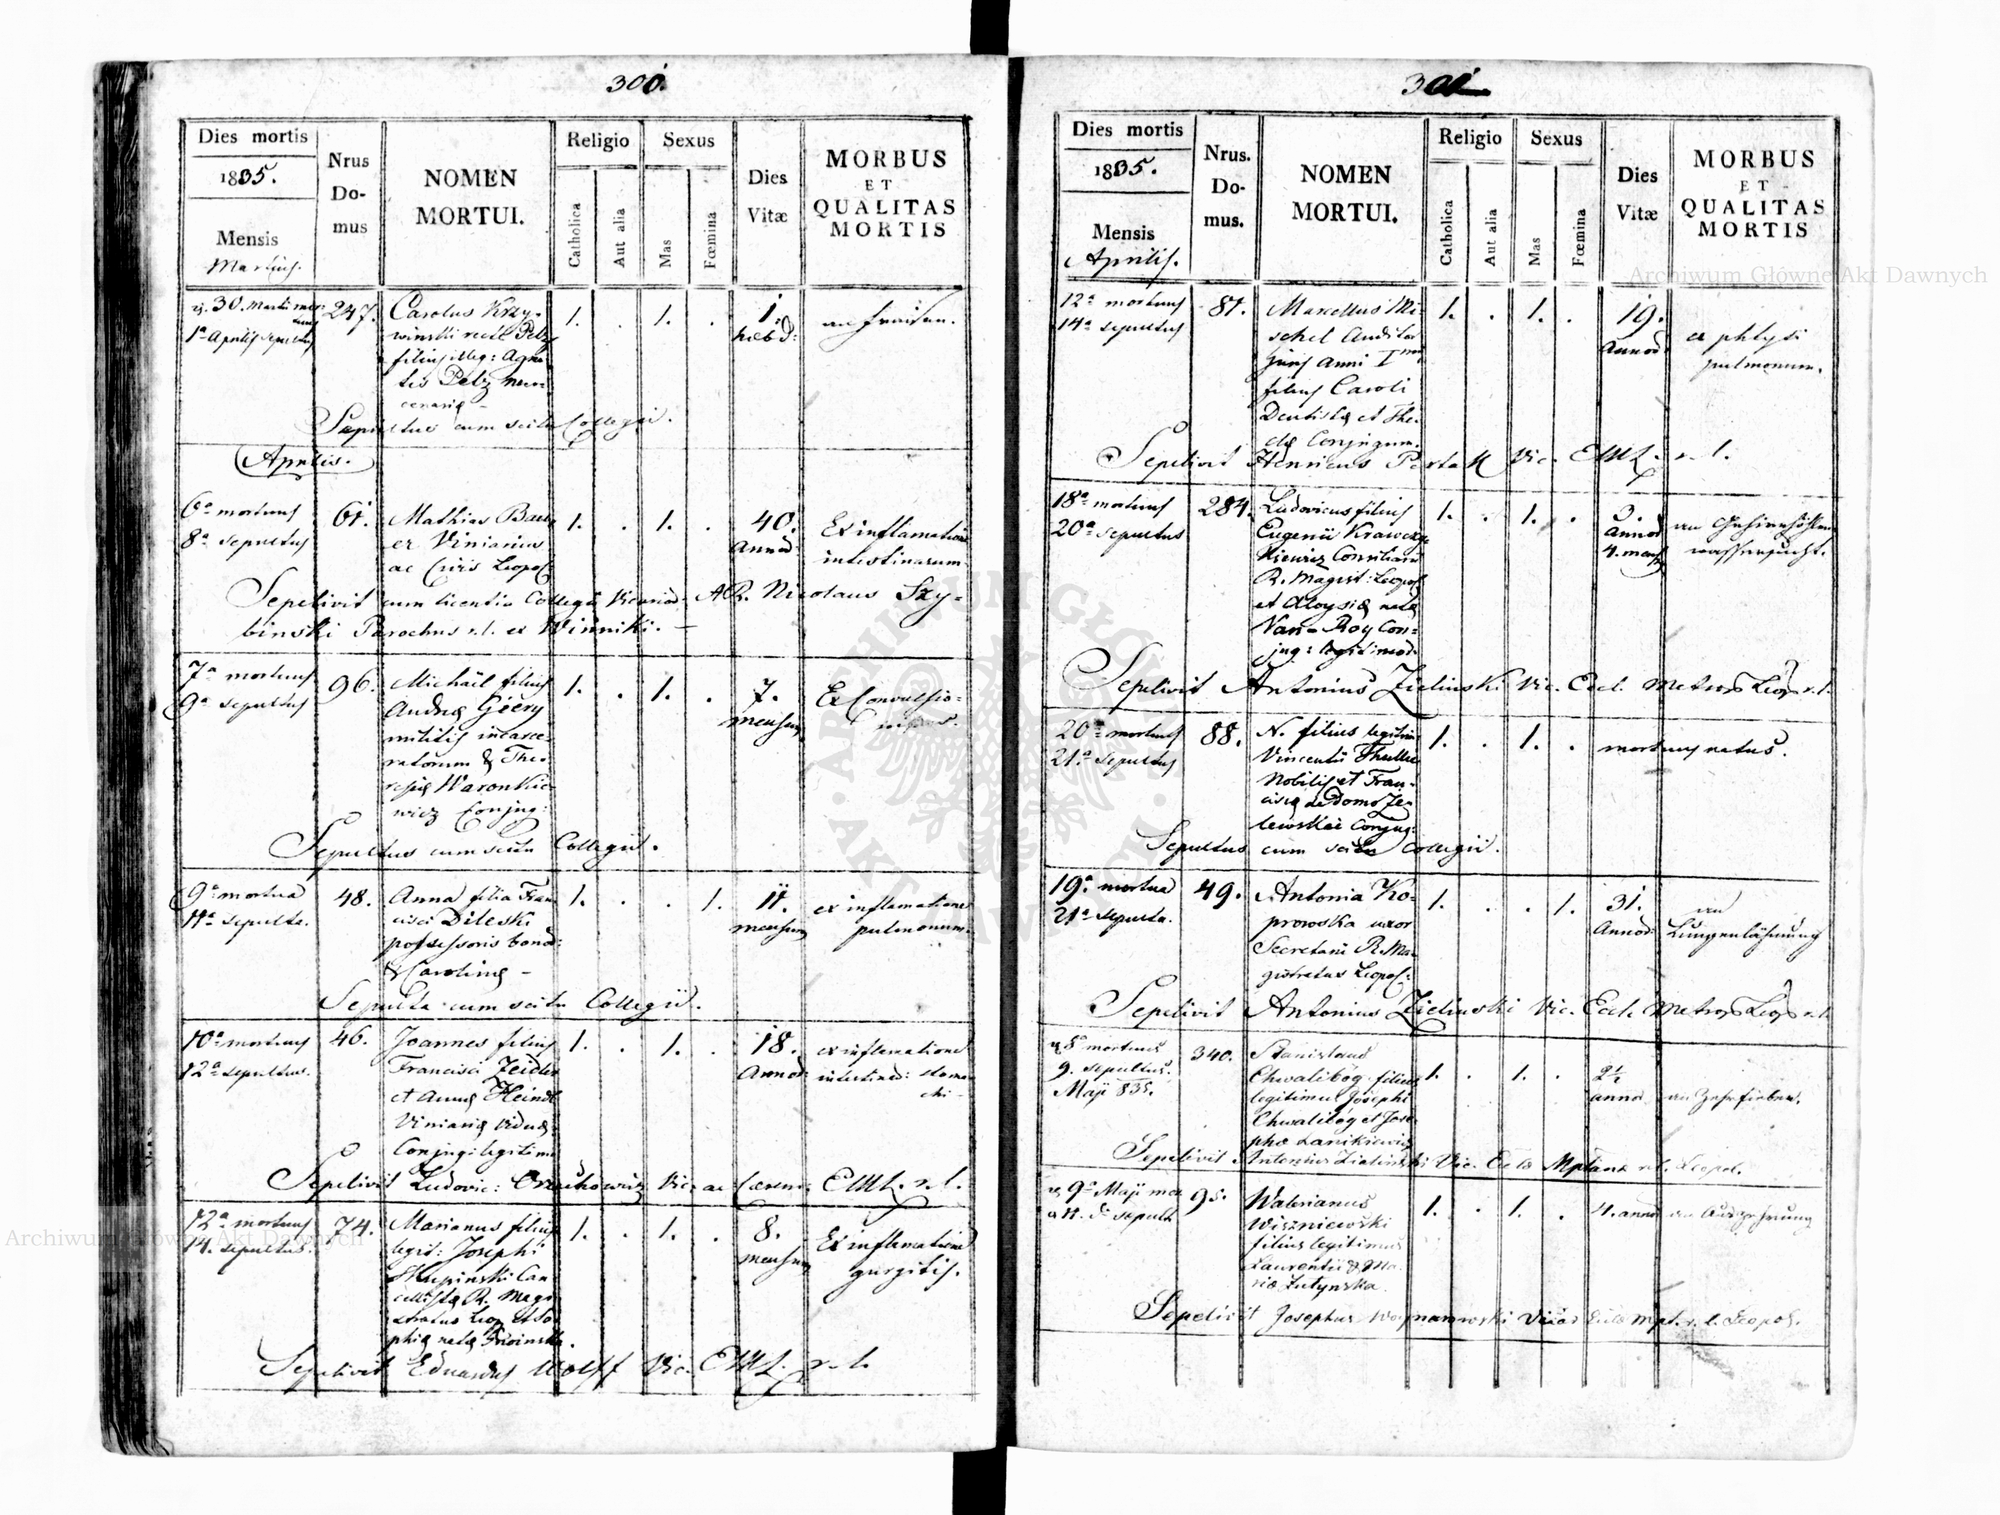 300.
Dies mortis
1835.
Mensis
Martius.
Nrus
Do-
mus
NOMEN
MORTUI.
Religio
Catholica
Aut alia
Sexus
Mas
Fœmina
Dies
Vitæ
MORBUS
ET
QUALITAS
MORTIS
30. Martii
1a Aprilis sepultus
247.
Carolus Krzy-
winski recte Pelz
filius illeg: Agne-
tis Pelz mer-
cenariæ -
1. . 1. .
1.
hebd:
an Fraisen.
Sepultus cum scitu Collegii.
Aprilis.
6a mortuus
8a sepultus
61.
Mathias Bau-
er Viniarius
ac Civis Leopol
1. . 1. .
40.
Annor:
Ex inflamatione
intestinorum
Sepelivit cum licentia Collegii Vicarior: AR. Nicolaus Szy-
binski Parochus r.l. ex Winniki. -
7a mortuus
9a sepultus
96.
Michaël filius
Andreæ Géery
militis incarce-
ratorum & The-
resiæ Waronkie-
wicz Conjug:
1. . 1. .
7.
mensium
Ex Convulsio-
nibus.
Sepultus cum scitu Collegii.
9a mortua
11a sepulta.
48.
Anna filia Fran-
cisci Dileski
possessoris bonor:
& Carolinæ -
1. . . 1.
11.
mensium
ex inflamatione
pulmonum.
Sepulta cum scitu Collegii.
10a mortuus
12a sepultus.
46.
Joannes filius
Francisci Zeidler
et Annæ Heindl
Viniariæ viduæ
Conjug: legitim
1. . 1. .
18.
Annor:
ex inflamatione
intestinor: stoma-
chi -
Sepelivit Ludovic: Orzechowicz Vic: ac Cærem: EML. r.l.
12a mortuus
14. sepultus.
74.
Marianus filius
legit: Josephi
Skupinski Can-
cellistæ R. Magi-
stratus Leop et So-
phiæ natæ
1. . 1. .
8.
mensium
Ex inflamatione
gurgitis.
Sepelivit Eduardus Wolff Vic. EML. r.l.
301
Dies mortis
1835.
Mensis
Aprilis.
Nrus.
Do-
mus.
NOMEN
MORTUI.
Religio
Catholica
Aut alia
Sexus
Mas
Fœmina
Dies
Vitæ
MORBUS
ET
QUALITAS
MORTIS
12a mortuus
14a sepultus
81.
Marcellus Mi-
schel Auditor
juris Anni Imi
filius Caroli
Dentistæ et The-
clæ Conjugum.
1. . 1. .
19.
Annor:
ex phtysi
pulmonum.
Sepelivit Henricus Vic. EML. r.l.
18a mortuus
20a sepultus
284.
Ludovicus filius
Eugenii Krawczy-
kiewicz Consiliarii
R. Magist: Leopol
et Aloysiæ natæ
Van-Roy Con-
jug: legitimor:
1. . 1. .
3.
annor
4. mens
an Gehirnhöhlen
wassersucht.
Sepelivit Antonius Zielinski Vic. Eccl. Metrop Leop r.l.
20a mortuus
21a sepultus
88.
N. filius legitim
Vincentii Thullie
Nobilis et Fran-
ciscæ de Domo Ze-
lewskie Conjug:
1. . 1. .
mortuus natus.
Sepultus cum scitu Collegii.
19a mortua
21a sepulta.
49.
Antonia Ko-
prowska uxor
Secretarii R. Ma-
gistratus Leopol:
1. . . 1.
31.
Annor:
an
Lungenlähmung
Sepelivit Antonius Zielinski Vic. Eccl. Metrop Leop r.l.
8a mortuus
9. sepultus.
Maji 835.
340.
Stanislaus
Chwalibóg filius
legitimus Josephi
Chwalibóg et Jose-
phæ Lanikiewicz
1. . 1. .
2½
annor
an Zehrfieber.
Sepelivit Antonius Zielinski Vic. Ecla Mptanæ r.l. Leopol.
9a Maji mor
11. sepult
95.
Walerianus
Wiszniewski
filius legitimus
Laurentii & Ma-
riæ Lutynska.
1. . 1. .
4. annor
an Auszehrung
Sepelivit Josephus Vicar Ecla Mpt. r.l. Leopol.
Archiwum Główne Akt Dawnych
Archiwum Główne Akt Dawnych
ARCHIWUM GŁÓWNE
AKT DAWNYCH